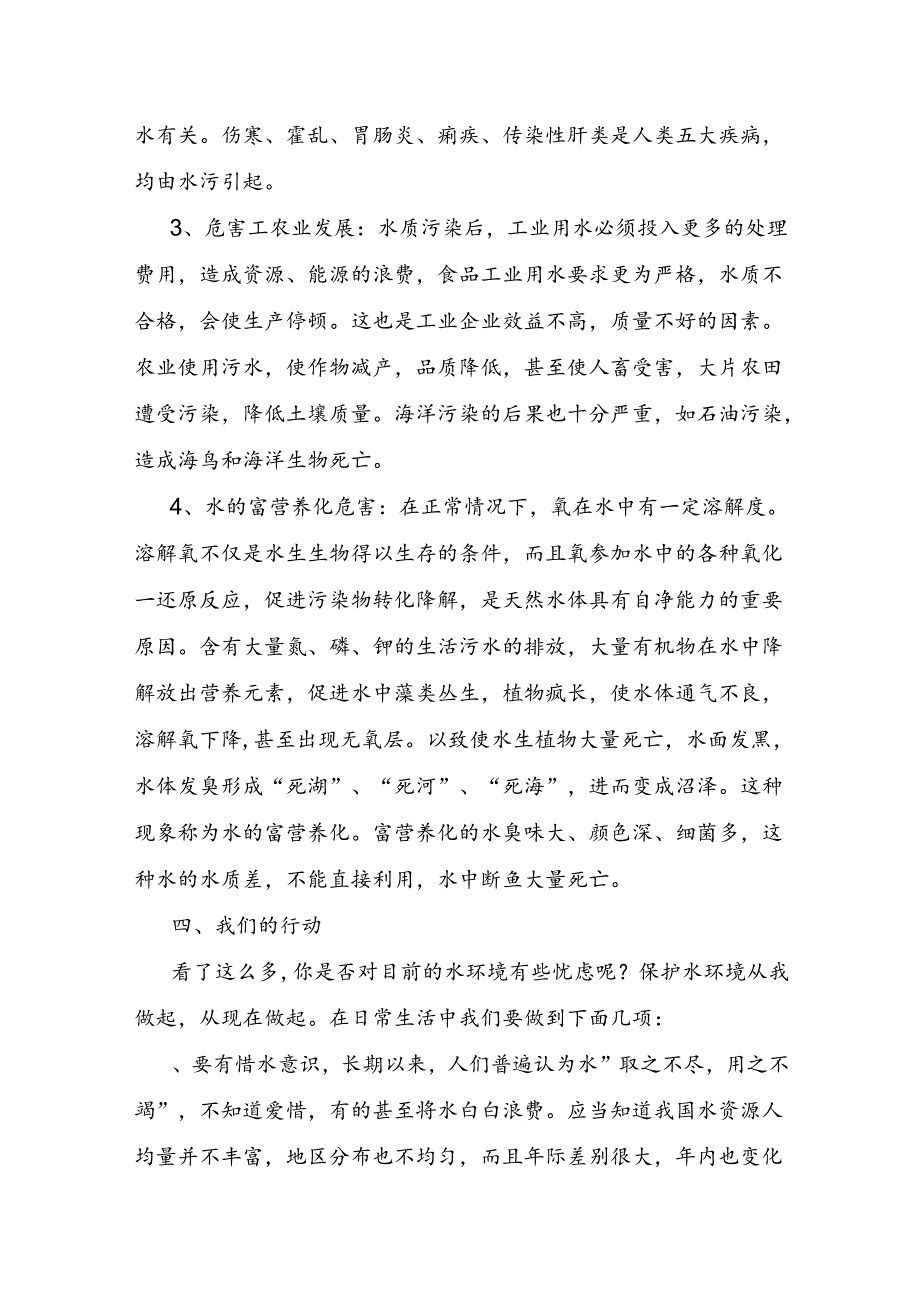 水有关。伤寒、霍乱、胃肠炎、痢疾、传染性肝类是人类五大疾病，
均由水污引起。
3、危害工农业发展：水质污染后，工业用水必须投入更多的处理
费用，造成资源、能源的浪费，食品工业用水要求更为严格，水质不
合格，会使生产停顿。这也是工业企业效益不高，质量不好的因素。
农业使用污水，使作物减产，品质降低，甚至使人畜受害，大片农田
遭受污染，降低土壤质量。海洋污染的后果也十分严重，如石油污染，
造成海鸟和海洋生物死亡。
4、水的富营养化危害：在正常情况下，氧在水中有一定溶解度。
溶解氧不仅是水生生物得以生存的条件，而且氧参加水中的各种氧化
一还原反应，促进污染物转化降解，是天然水体具有自净能力的重要
原因。含有大量氮、磷、钾的生活污水的排放，大量有机物在水中降
解放出营养元素，促进水中藻类丛生，植物疯长，使水体通气不良，
溶解氧下降,甚至出现无氧层。以致使水生植物大量死亡，水面发黑，
水体发臭形成“死湖”、“死河”、“死海”，进而变成沼泽。这种
现象称为水的富营养化。富营养化的水臭味大、颜色深、细菌多，这
种水的水质差，不能直接利用，水中断鱼大量死亡。
四、我们的行动
看了这么多,你是否对目前的水环境有些忧虑呢？保护水环境从我
做起，从现在做起。在日常生活中我们要做到下面几项：
、要有惜水意识，长期以来，人们普遍认为水”取之不尽，用之不
竭”，不知道爱惜，有的甚至将水白白浪费。应当知道我国水资源人
均量并不丰富，地区分布也不均匀，而且年际差别很大，年内也变化